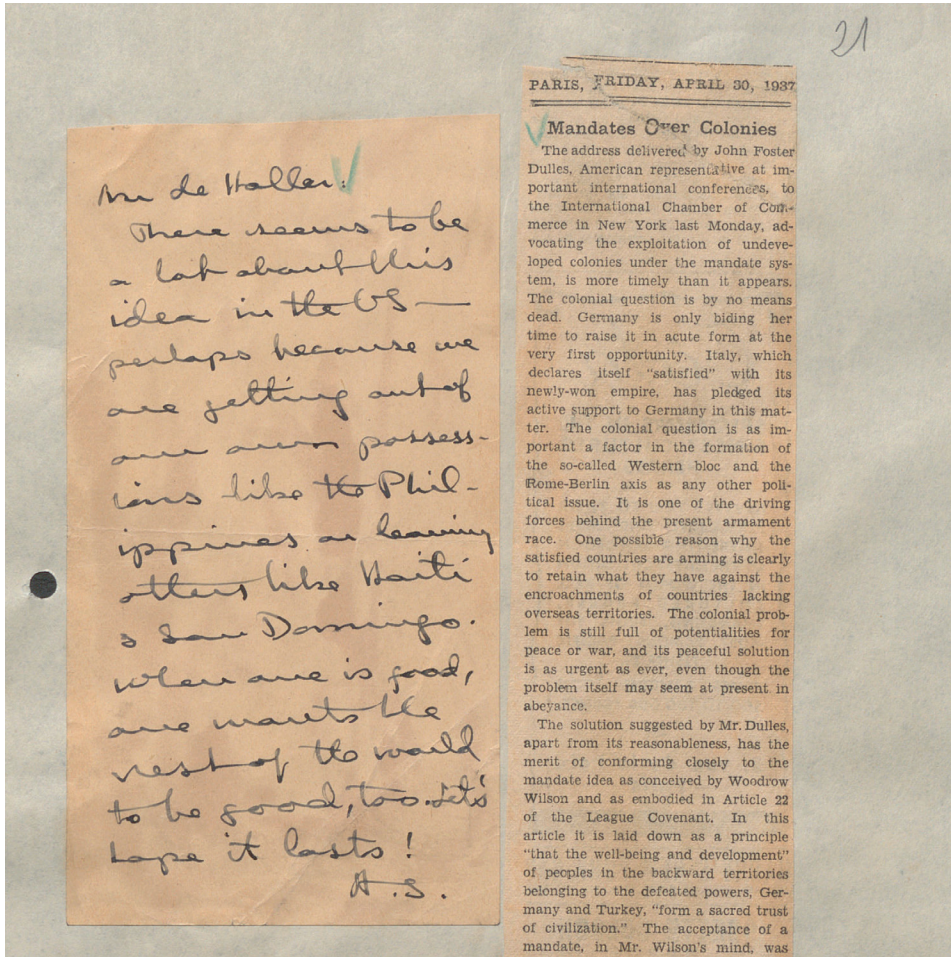 21
Mr de Haller:
There seems to be
a lot about this
idea in the US —
perhaps because we
are getting out of
our own possess-
ions like the Phil-
ippines or leaving
others like Haiti
& San Domingo.
When one is good,
one wants the
rest of the world
to be good, too. Let's
hope it lasts!
H.S.
PARIS, FRIDAY, APRIL 30, 1937
Mandates Over Colonies
The address delivered by John Foster
Dulles, American representative at im-
portant international conferences, to
the International Chamber of Com-
merce in New York last Monday, ad-
vocating the exploitation of undeve-
loped colonies under the mandate sys-
tem, is more timely than it appears.
The colonial question is by no means
dead. Germany is only biding her
time to raise it in acute form at the
very first opportunity. Italy, which
declares itself "satisfied" with its
newly-won empire, has pledged its
active support to Germany in this mat-
ter. The colonial question is as im-
portant a factor in the formation of
the so-called Western bloc and the
Rome-Berlin axis as any other poli-
tical issue. It is one of the driving
forces behind the present armament
race. One possible reason why the
satisfied countries are arming is clearly
to retain what they have against the
encroachments of countries lacking
overseas territories. The colonial prob-
lem is still full of potentialities for
peace or war, and its peaceful solution
is as urgent as ever, even though the
problem itself may seem at present in
abeyance.
The solution suggested by Mr. Dulles,
apart from its reasonableness, has the
merit of conforming closely to the
mandate idea as conceived by Woodrow
Wilson and as embodied in Article 22
of the League Covenant. In this
article it is laid down as a principle
"that the well-being and development"
of peoples in the backward territories
belonging to the defeated powers, Ger-
many and Turkey, "form a sacred trust
of civilization." The acceptance of a
mandate, in Mr. Wilson's mind, was